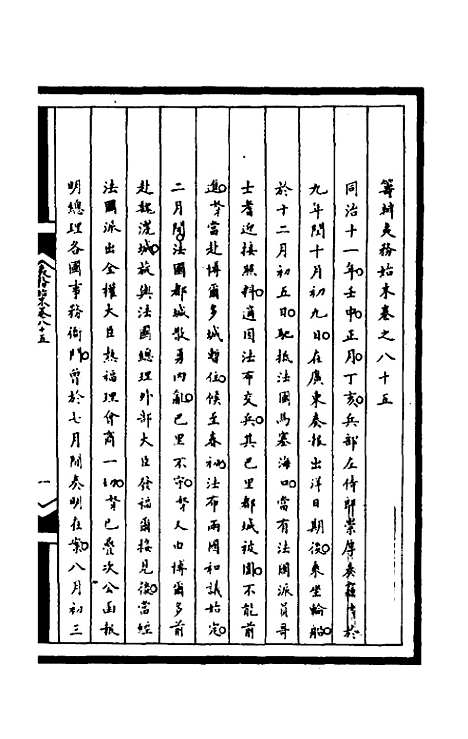 籌辦夷務始末卷之八十五
同治十一年壬申正月丁亥兵部左侍郎崇厚奏竊於
九年閏十月初九日在廣東奏報出洋日期後乘坐輪船
於十二月初五日馳抵法國馬塞海口當有法國派員哥
士耆迎接照料適因法布交兵其巴里都城被圍不能前
進奴才當赴博爾多城暫住候至春初法布兩國和議始定
二月間法國都城散勇內亂巴里不守奴才又由博爾多前
赴魏灑城旋與法國總理外部大臣發福爾接見後當經
法國派出全權大臣熱福理會商一切奴才已疊次公函報
明總理各國事務衙門曾於七月間奏明在案八月初三
夷務始末卷八十五
一